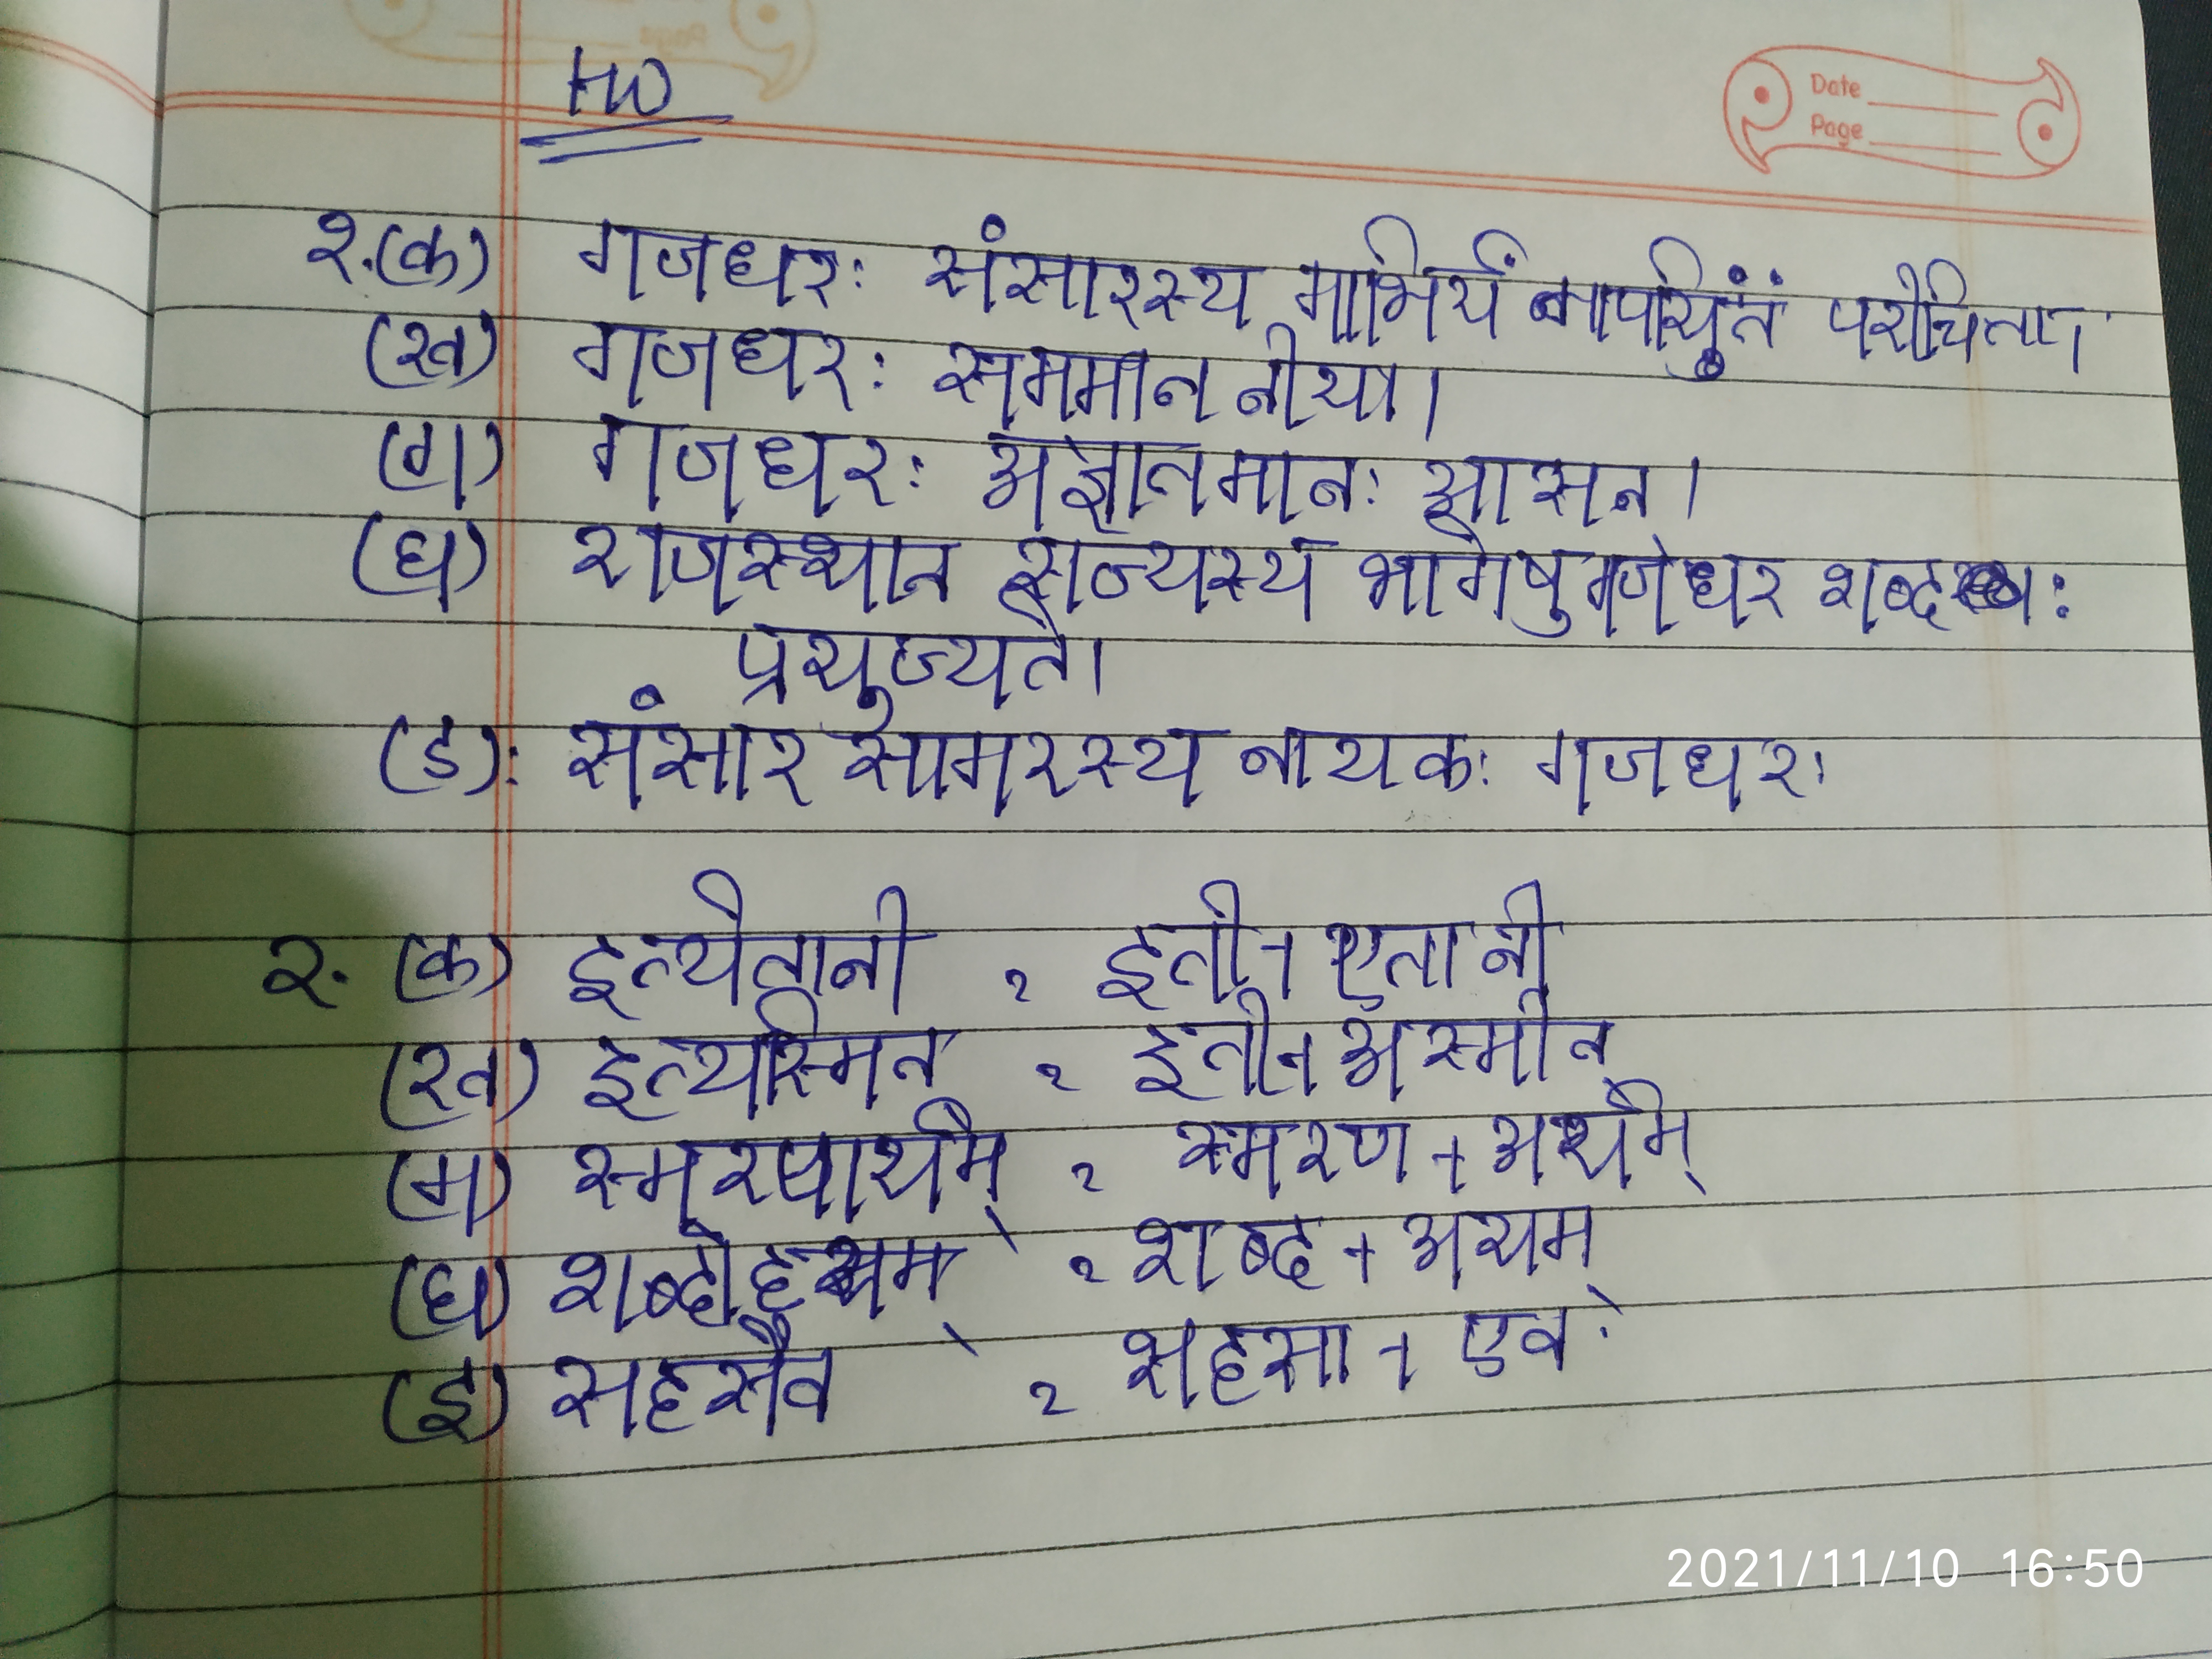 HW
Date
Page
१.(क) गजधरः संसारस्य गाभिर्यं मापयितुं परीचिता।
(ख) गजधरः सममाननीया।
(ग) गजधरः अज्ञातमानः आसन।
(घ) राजस्थान राज्यस्य भागेषु गजधर शब्दः
प्रयुज्यते।
(ड): संसार सागरस्य नायकः गजधरः
२. (क) इत्येतानी = इती + एतानी
(ख) इत्यस्मिन = इती + अस्मीन्
(ग) स्मरणार्थम् = स्मरण + अर्थम्
(घ) = शब्द + अयम्
(ड) सहसैव = सहसा + एव
2021/11/10 16:50